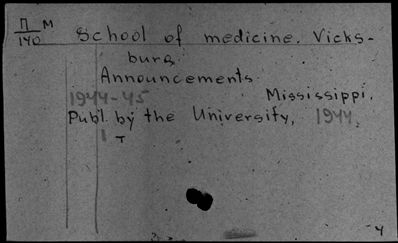 П M
140 School of medicine. Vicks-
burg
Announcements.
1944-45 Mississippi.
Publ. by the University, 1944.
1 T
4